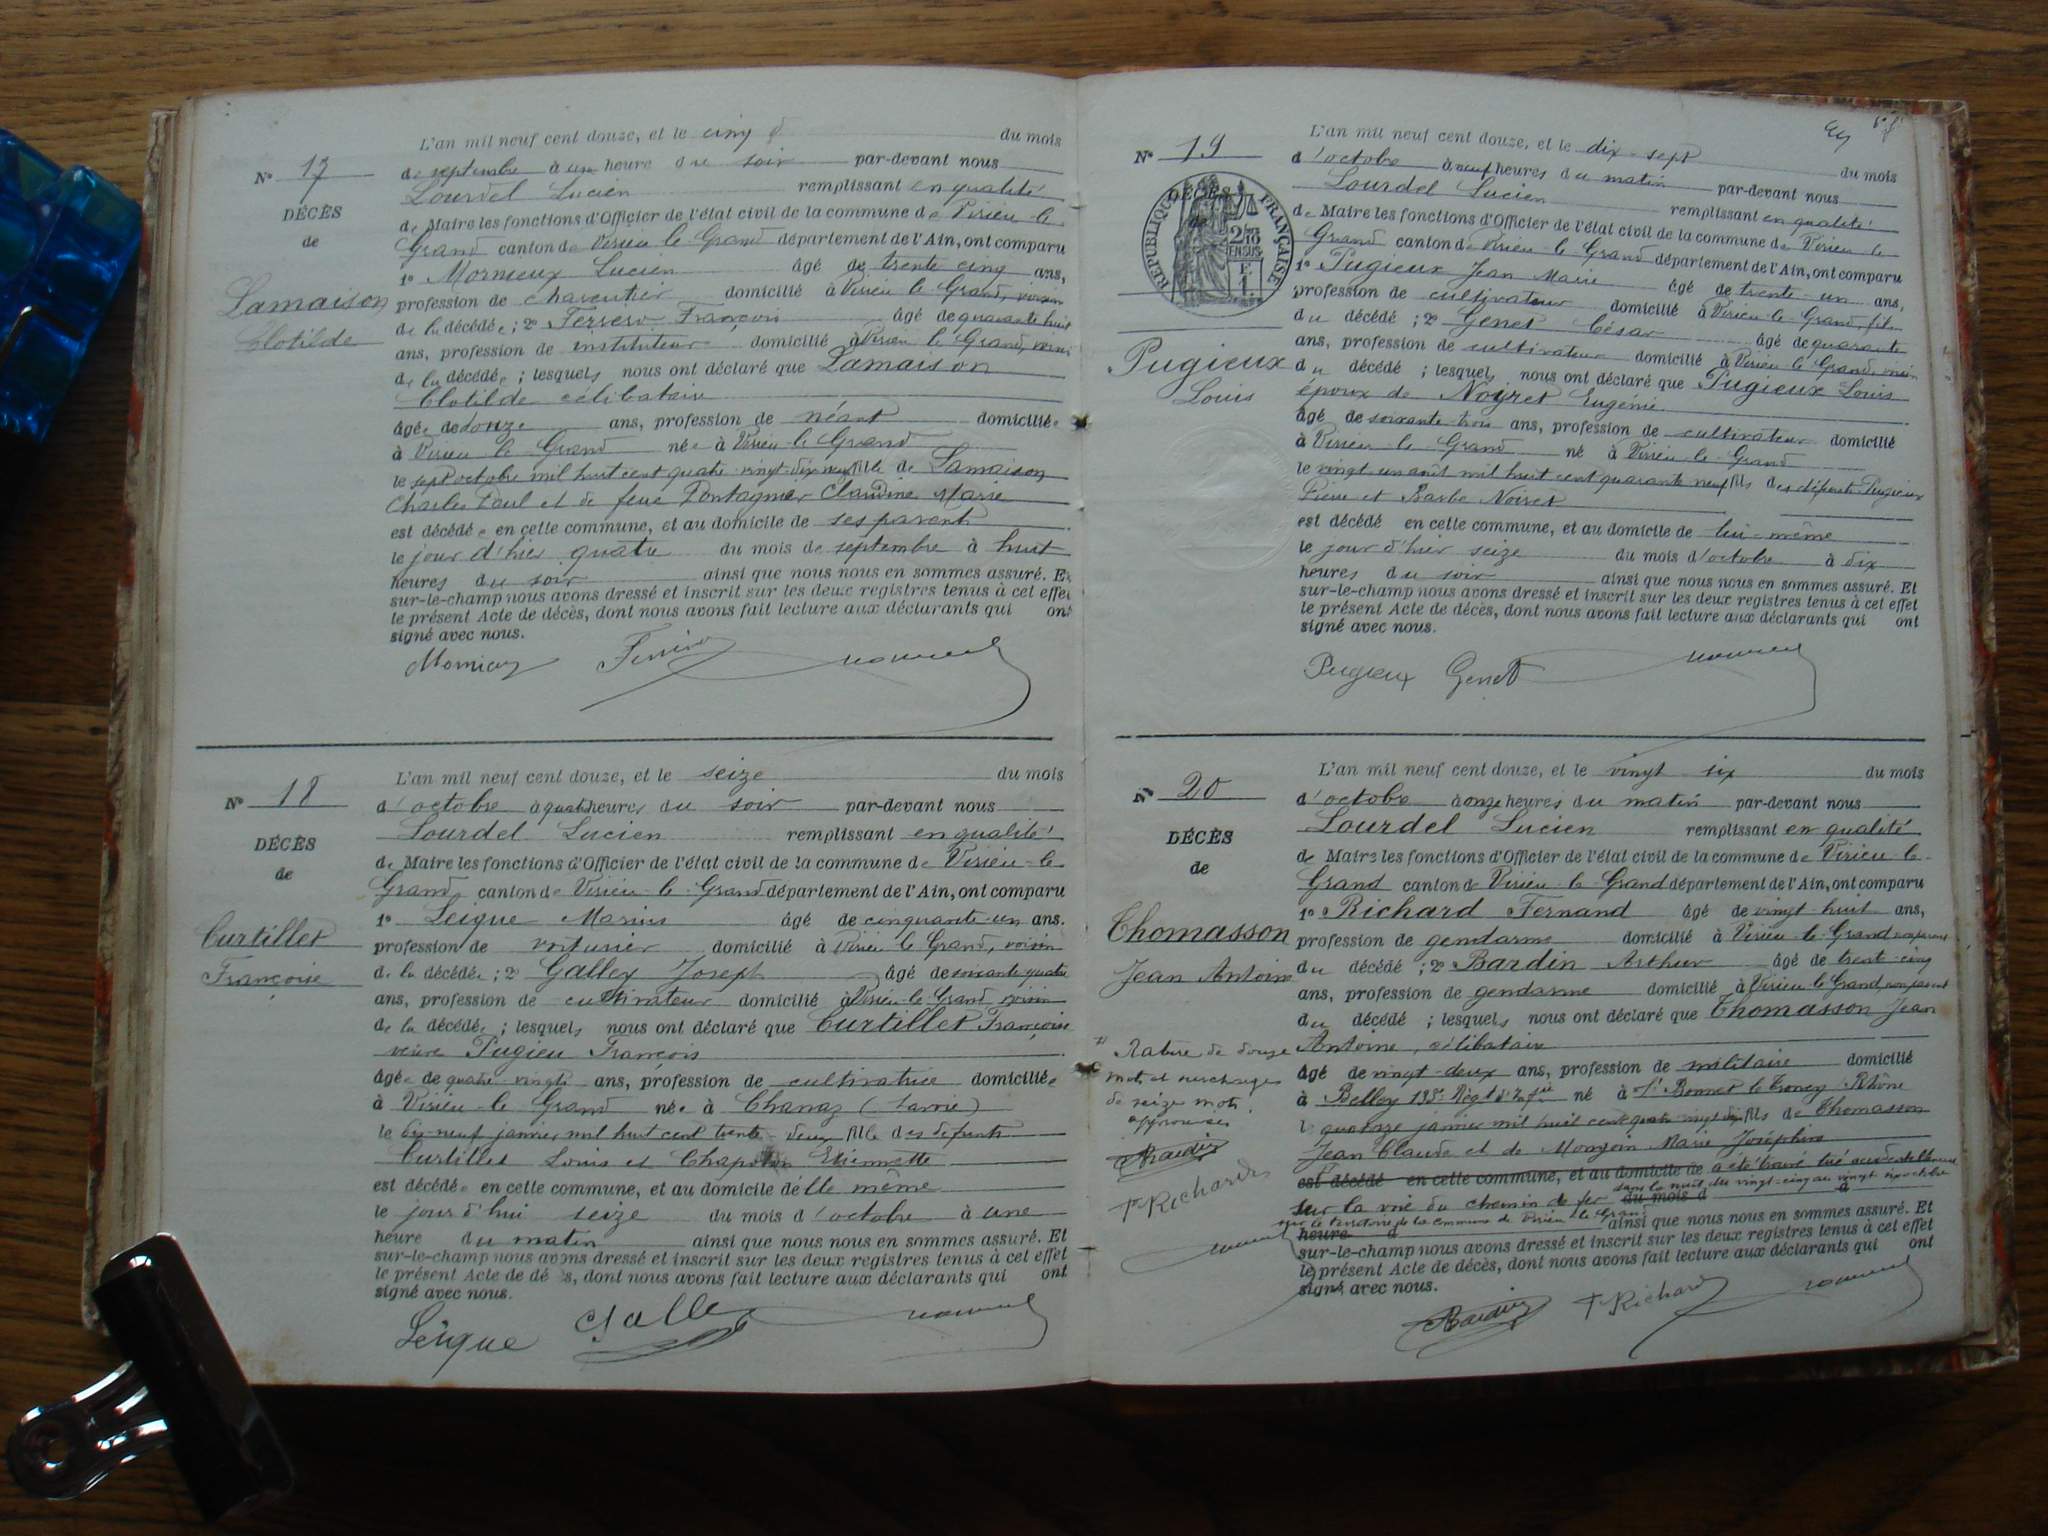 L'an mil neuf cent douze, et le cinq du mois
N° 17
de septembre à une heure du soir par-devant nous
Lourdel Lucien remplissant en qualité
DÉCÈS
de Maire les fonctions d'Officier de l'état civil de la commune de Virieu-le
de
Grand canton de Virieu le Grand département de l'Ain, ont comparu
1° Mornieux Lucien âgé de trente cinq ans,
Lamaison
profession de charcutier domicilié à Virieu le Grand, voisin
Clotilde
de la décédée ; 2° Ferrero François âgé de quarante huit
ans, profession de instituteur domicilié à Virieu le Grand, voisin
de la décédée ; lesquels nous ont déclaré que Lamaison
Clotilde célibataire
âgée de douze ans, profession de néant domiciliée
à Virieu le Grand née à Virieu le Grand
le sept octobre mil huit cent quatre-vingt-dix neuf fille de Lamaison
Charles Paul et de feue Claudine Marie
est décédée en cette commune, et au domicile de ses parents
le jour d'hier quatre du mois de septembre à huit
heures du soir ainsi que nous nous en sommes assuré. Et
sur-le-champ nous avons dressé et inscrit sur les deux registres tenus à cet effet
le présent Acte de décès, dont nous avons fait lecture aux déclarants qui ont
signé avec nous.
L'an mil neuf cent douze, et le seize du mois
N° 18
d'octobre à quatre heures du soir par-devant nous
Lourdel Lucien remplissant en qualité
DÉCÈS
de Maire les fonctions d'Officier de l'état civil de la commune de Virieu-le
de
Grand canton de Virieu-le-Grand département de l'Ain, ont comparu
1° Leique Marius âgé de cinquante-un ans.
Curtillet
profession de voiturier domicilié à Virieu le Grand, voisin
Françoise
de la décédée ; 2° Galley Joseph âgé de soixante quatre
ans, profession de cultivateur domicilié à Virieu-le-Grand, voisin
de la décédée ; lesquels nous ont déclaré que Curtillet Françoise
veuve Pugieu François
âgée de quatre vingts ans, profession de cultivatrice domiciliée
à Virieu-le Grand née à Chanaz (Savoie)
le dix-neuf janvier mil huit cent trente-deux fille des défunts
Curtillet Louis et Etiennette
est décédée en cette commune, et au domicile d'elle même
le jour d'hui seize du mois d'octobre à une
heure du matin ainsi que nous nous en sommes assuré. Et
sur-le-champ nous avons dressé et inscrit sur les deux registres tenus à cet effet
le présent Acte de dé s, dont nous avons fait lecture aux déclarants qui ont
signé avec nous.
Leique Galley
L'an mil neuf cent douze, et le dix-sept du mois
N° 19
d'octobre à neuf heures du matin par-devant nous
Lourdel Lucien remplissant en qualité
DÉCÈS
RÉPUBLIQUE FRANÇAISE
2/10 EN SUS
1 F.
de Maire les fonctions d'Officier de l'état civil de la commune de Virieu-le
Grand canton de Virieu-le Grand département de l'Ain, ont comparu
1° Pugieux Jean Marie âgé de trente-un ans,
profession de cultivateur domicilié à Virieu-le-Grand, fils
du décédé ; 2° Genet César âgé de quarante
ans, profession de cultivateur domicilié à Virieu le Grand, voisin
Pugieux
Louis
du décédé ; lesquels nous ont déclaré que Pugieux Louis
époux de Noyret Eugénie
âgé de soixante trois ans, profession de cultivateur domicilié
à Virieu-le-Grand né à Virieu-le-Grand
le vingt un août mil huit cent quarante neuf fils des défunts Pugieux
Pierre et Barbe Noiret
est décédé en cette commune, et au domicile de lui-même
le jour d'hier seize du mois d'octobre à dix
heures du soir ainsi que nous nous en sommes assuré. Et
sur-le-champ nous avons dressé et inscrit sur les deux registres tenus à cet effet
le présent Acte de décès, dont nous avons fait lecture aux déclarants qui ont
signé avec nous.
Pugieux Genet
L'an mil neuf cent douze, et le vingt six du mois
N° 20
d'octobre à onze heures du matin par-devant nous
Lourdel Lucien remplissant en qualité
DÉCÈS
de Maire les fonctions d'Officier de l'état civil de la commune de Virieu-le-
de
Grand canton de Virieu-le-Grand département de l'Ain, ont comparu
1° Richard Fernand âgé de vingt-huit ans,
Thomasson
profession de gendarme domicilié à Virieu-le-Grand non parent
Jean Antoine
du décédé ; 2° Bardin Arthur âgé de trente-cinq
ans, profession de gendarme domicilié à Virieu le Grand, non parent
du décédé ; lesquels nous ont déclaré que Thomasson Jean
Antoine, célibataire
Rature de douze
mots et surcharge
de seize mots
approuvées
F Richard
âgé de vingt-deux ans, profession de militaire domicilié
à Belley 133e Régt d'Infie né à St Bonnet le Troncy Rhône
le quatorze janvier mil huit cent quatre-vingt-dix fils de Thomasson
Jean Claude et de Monjoin Marie Joséphine
est décédé en cette commune, et au domicile de a été trouvé tué accidentellement
sur la voie du chemin de fer dans la nuit du vingt-cinq au vingt six octobre
du mois d à
sur le territoire de la commune de Virieu-le-Grand
heure d ainsi que nous nous en sommes assuré. Et
sur-le-champ nous avons dressé et inscrit sur les deux registres tenus à cet effet
le présent Acte de décès, dont nous avons fait lecture aux déclarants qui ont
signé avec nous.
Bardin F Richard